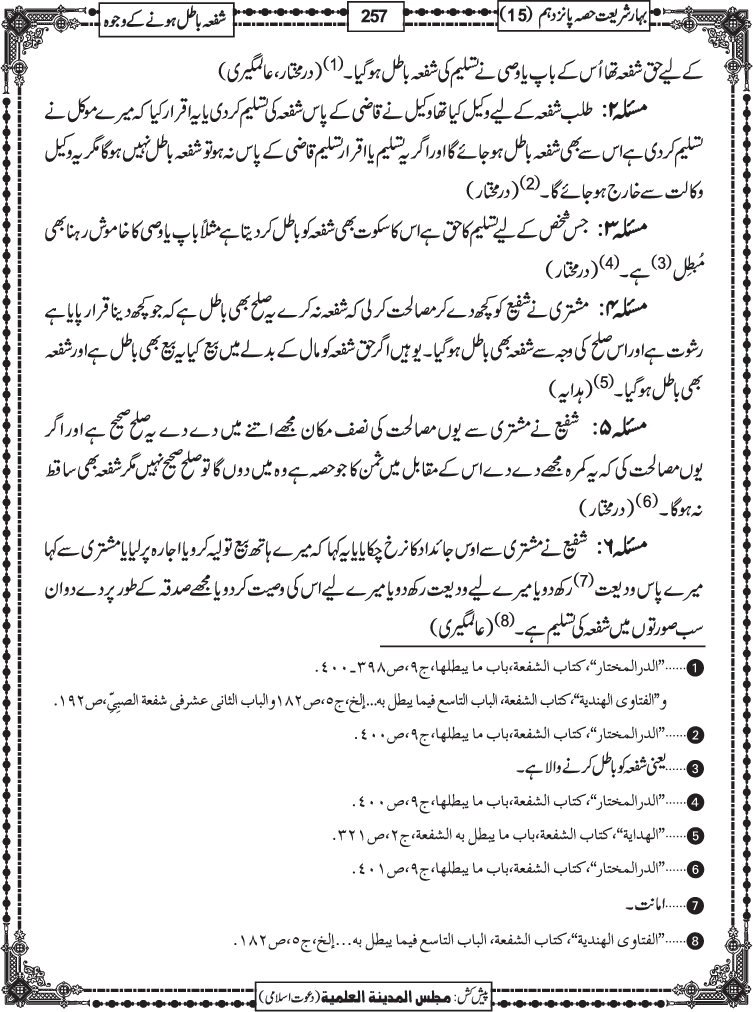 بہارِ شریعت حصہ پانزدہم (15)
257
شفعہ باطل ہونے کے وجوہ
کے لیے حق شفعہ تھا اُس کے باپ یا وصی نے تسلیم کی شفعہ باطل ہوگیا۔(1) (درمختار، عالمگیری)
مسئلہ ۲: طلب شفعہ کے لیے وکیل کیا تھا وکیل نے قاضی کے پاس شفعہ کی تسلیم کردی یا یہ اقرار کیا کہ میرے موکل نے
تسلیم کردی ہے اس سے بھی شفعہ باطل ہو جائے گا اور اگر یہ تسلیم یا اقرار تسلیم قاضی کے پاس نہ ہو تو شفعہ باطل نہیں ہوگا مگر یہ وکیل
وکالت سے خارج ہو جائے گا۔(2) (درمختار)
مسئلہ ۳: جس شخص کے لیے تسلیم کا حق ہے اس کا سکوت بھی شفعہ کو باطل کر دیتا ہے مثلاً باپ یا وصی کا خاموش رہنا بھی
مُبطِل (3) ہے۔(4) (درمختار)
مسئلہ ۴: مشتری نے شفیع کو کچھ دے کر مصالحت کر لی کہ شفعہ نہ کرے یہ صلح بھی باطل ہے کہ جو کچھ دینا قرار پایا ہے
رشوت ہے اور اس صلح کی وجہ سے شفعہ بھی باطل ہوگیا۔ یو ہیں اگر حق شفعہ کو مال کے بدلے میں بیع کیا یہ بیع بھی باطل ہے اور شفعہ
بھی باطل ہوگیا۔(5) (ہدایہ)
مسئلہ ۵: شفیع نے مشتری سے یوں مصالحت کی کہ نصف مکان مجھے اتنے میں دے دے یہ صلح صحیح ہے اور اگر
یوں مصالحت کی کہ یہ کمرہ مجھے دے دے اس کے مقابل میں ثمن کا جو حصہ ہے وہ میں دوں گا تو صلح صحیح نہیں مگر شفعہ بھی ساقط
نہ ہوگا۔(6) (درمختار)
مسئلہ ۶: شفیع نے مشتری سے اوس جائداد کا نرخ چکایا یا یہ کہا کہ میرے ہاتھ بیع تولیہ کرو یا اجارہ پر لیا یا مشتری سے کہا
میرے پاس ودیعت (7) رکھ دو یا میرے لیے ودیعت رکھ دو یا میرے لیے اس کی وصیت کر دو یا مجھے صدقہ کے طور پر دے دو ان
سب صورتوں میں شفعہ کی تسلیم ہے۔(8) (عالمگیری)
1......"الدرالمختار"، كتاب الشفعة، باب ما يبطلها، ج۹، ص۳۹۸۔۴۰۰.
و"الفتاوى الهندية"، كتاب الشفعة، الباب التاسع فيما يبطل به...إلخ، ج۵، ص۱۸۲ والباب الثانى عشر فى شفعة الصبيّ، ص۱۹۲.
2......"الدرالمختار"، كتاب الشفعة، باب ما يبطلها، ج۹، ص۴۰۰.
3......یعنی شفعہ کو باطل کرنے والا ہے۔
4......"الدرالمختار"، كتاب الشفعة، باب ما يبطلها، ج۹، ص۴۰۰.
5......"الهداية"، كتاب الشفعة، باب ما يبطل به الشفعة، ج۲، ص۳۲۱.
6......"الدرالمختار"، كتاب الشفعة، باب ما يبطلها، ج۹، ص۴۰۱.
7......امانت۔
8......"الفتاوى الهندية"، كتاب الشفعة، الباب التاسع فيما يبطل به...إلخ، ج۵، ص۱۸۲.
پیش کش: مجلس المدينة العلمية (دعوت اسلامی)